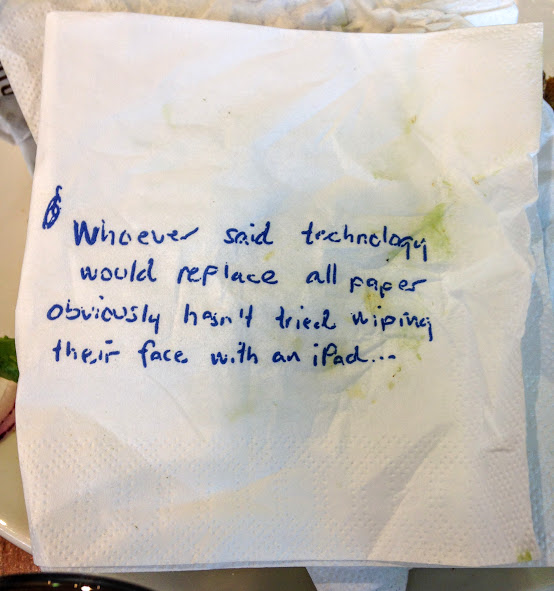 Whoever said technology
would replace all paper
obviously hasn't tried wiping
their face with an iPad...